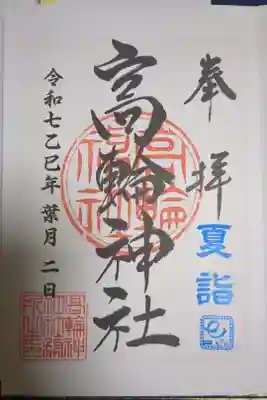 奉拝
夏詣
高輪神社
令和七乙巳年 葉月 二日